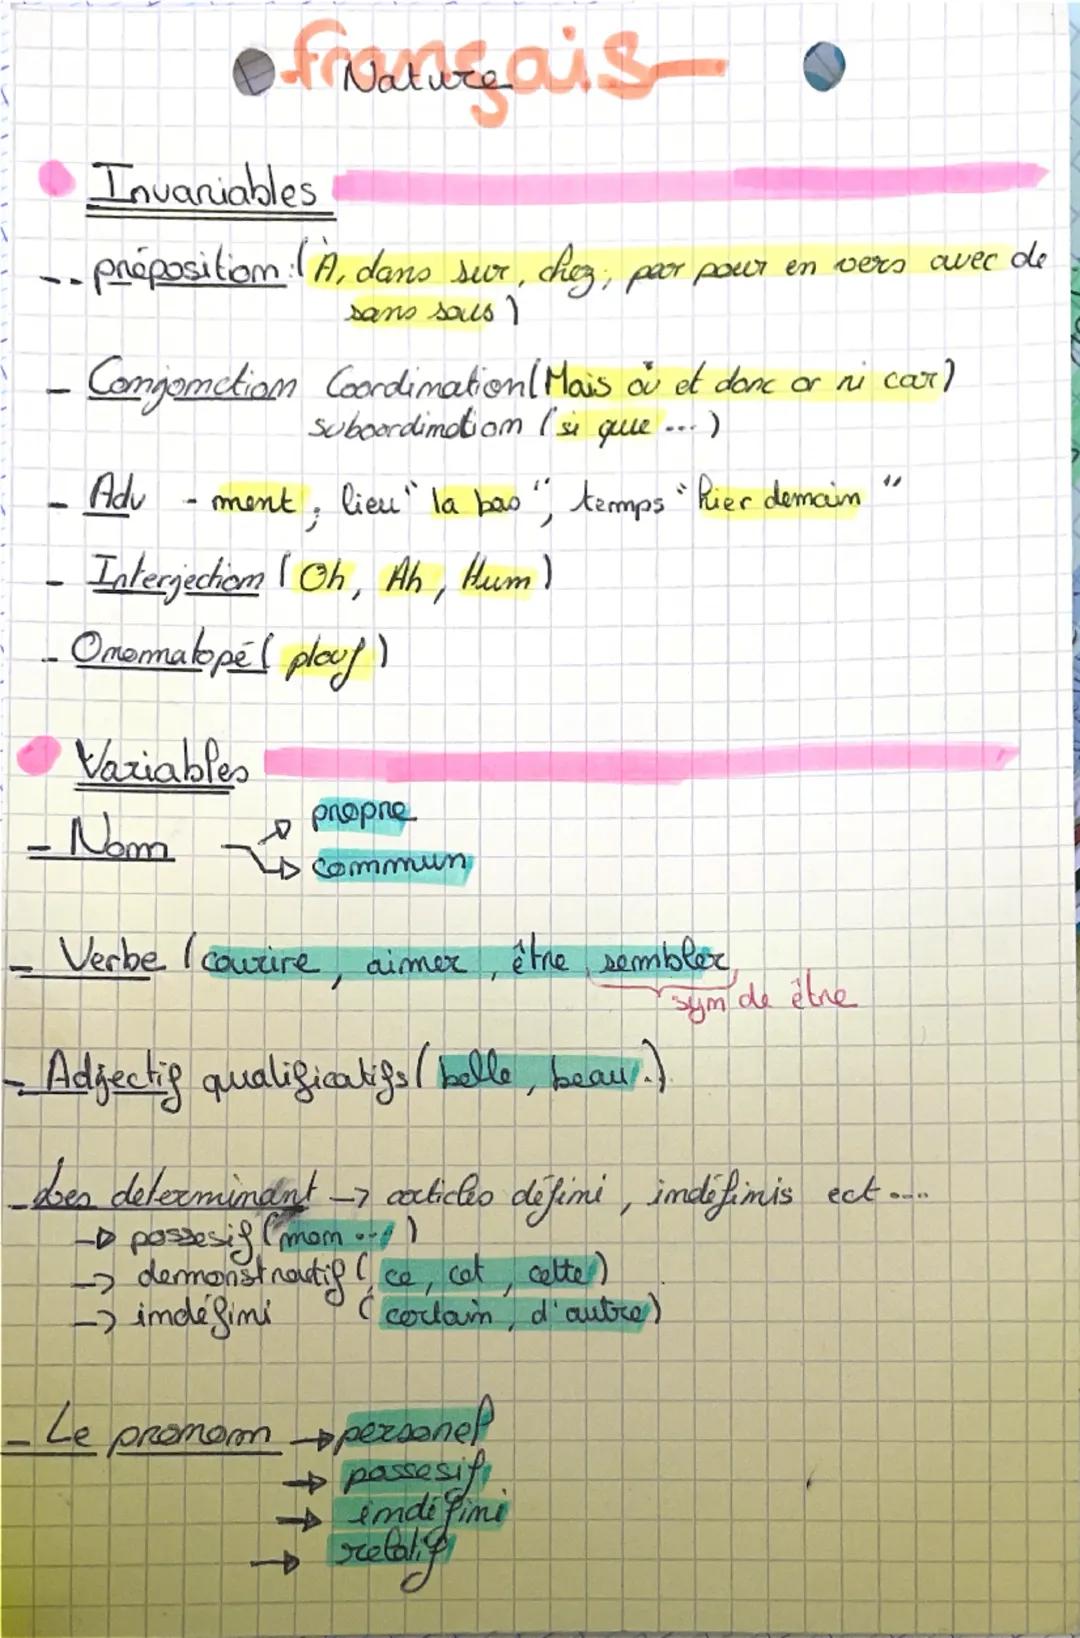 français
Nature
Invariables
-- préposition : (À, dans sur, chez, par pour en vers avec de
sans sous)
- Conjonction Coordination (Mais où et donc or ni car)
subordination (si que ...)
- Adv - ment, lieu "la bas", temps "hier demain"
- Interjection (Oh, Ah, Hum)
- Onomatopé (plouf)
Variables
- Nom → propre
→ commun
- Verbe (courire, aimer, être sembler,
sym de être
- Adjectif qualificatifs (belle, beau.)
- Les determinant → articles défini, indéfinis ect....
→ possesif (mon ...)
→ demonstratif (ce, cet, cette)
→ indéfini (certain, d'autre)
- Le pronom → personel
→ possesif,
→ indéfini
→ relatif